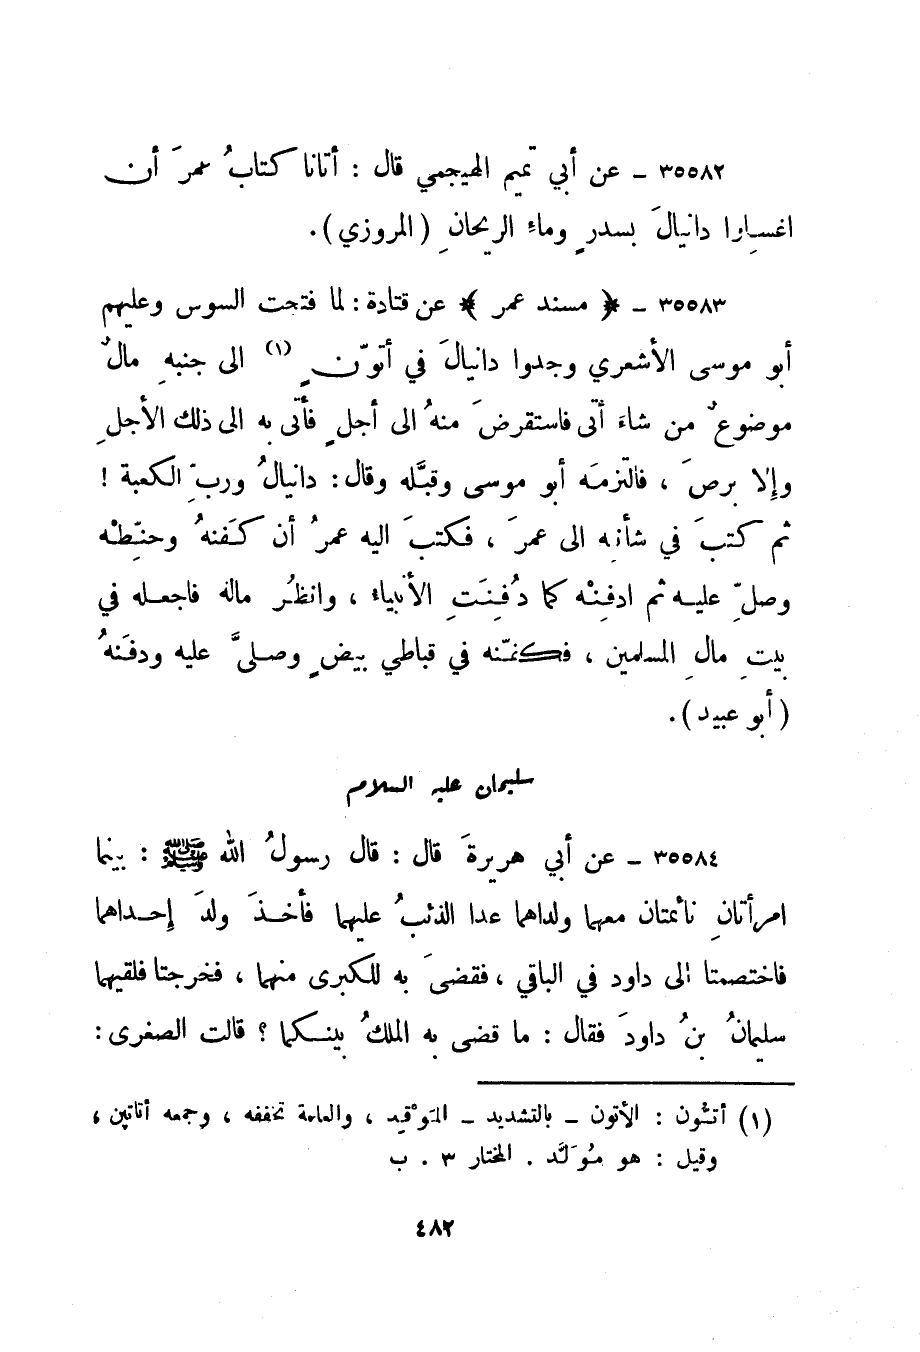 ٣٥٥٨٢ ـ عن أبي تميم الهيجمي قال : أتانا كتابُ عمرَ أن
اغسِلوا دانيالَ بسدرٍ وماءِ الريحانِ (المروزي).
٣٥٥٨٣ ـ ﴿ مسند عمر ﴾ عن قتادة : لما فتحت السوس وعليهم
أبو موسى الأشعري وجدوا دانيالَ في أتوّنٍ (١) الى جنبهِ مالٌ
موضوعٌ من شاءَ أتى فاستقرضَ منهُ الى أجلٍ فأتى به الى ذلك الأجلِ
وإلا برصَ ، فالتزمَه أبو موسى وقبَّله وقال : دانيالُ وربِّ الكعبة !
ثم كتبَ في شأنِه الى عمرَ ، فكتبَ اليه عمرُ أن كَفنهُ وحنِّطْه
وصلِّ عليه ثم ادفِنْه كما دُفِنَتِ الأنبياء ، وانظُر مالَه فاجعله في
بيتِ مالِ المسلمين ، فكفّنه في قباطي بيضٍ وصلىَّ عليه ودفَنهُ
(أبو عبيد).
سليمان عليه السلام
٣٥٥٨٤ ـ عن أبي هريرةَ قال : قال رسولُ الله ﷺ : بينما
امرأتانِ نائمتان معهما ولداهما عدا الذئبُ عليهما فأخذَ ولدَ إحداهما
فاختصمتا الى داود في الباقي ، فقضىَ به للكبرى منهما ، فخرجتا فلقيهما
سليمانُ بنُ داودَ فقال : ما قضى به الملكُ بينكما ؟ قالت الصغرى :
(١) أتُّون : الأتون ـ بالتشديد ـ المَوْقِد ، والعامة تخففه ، وجمعه أتاتين ،
وقيل : هو مُوَلَّد . المختار ٣ . ب
٤٨٢